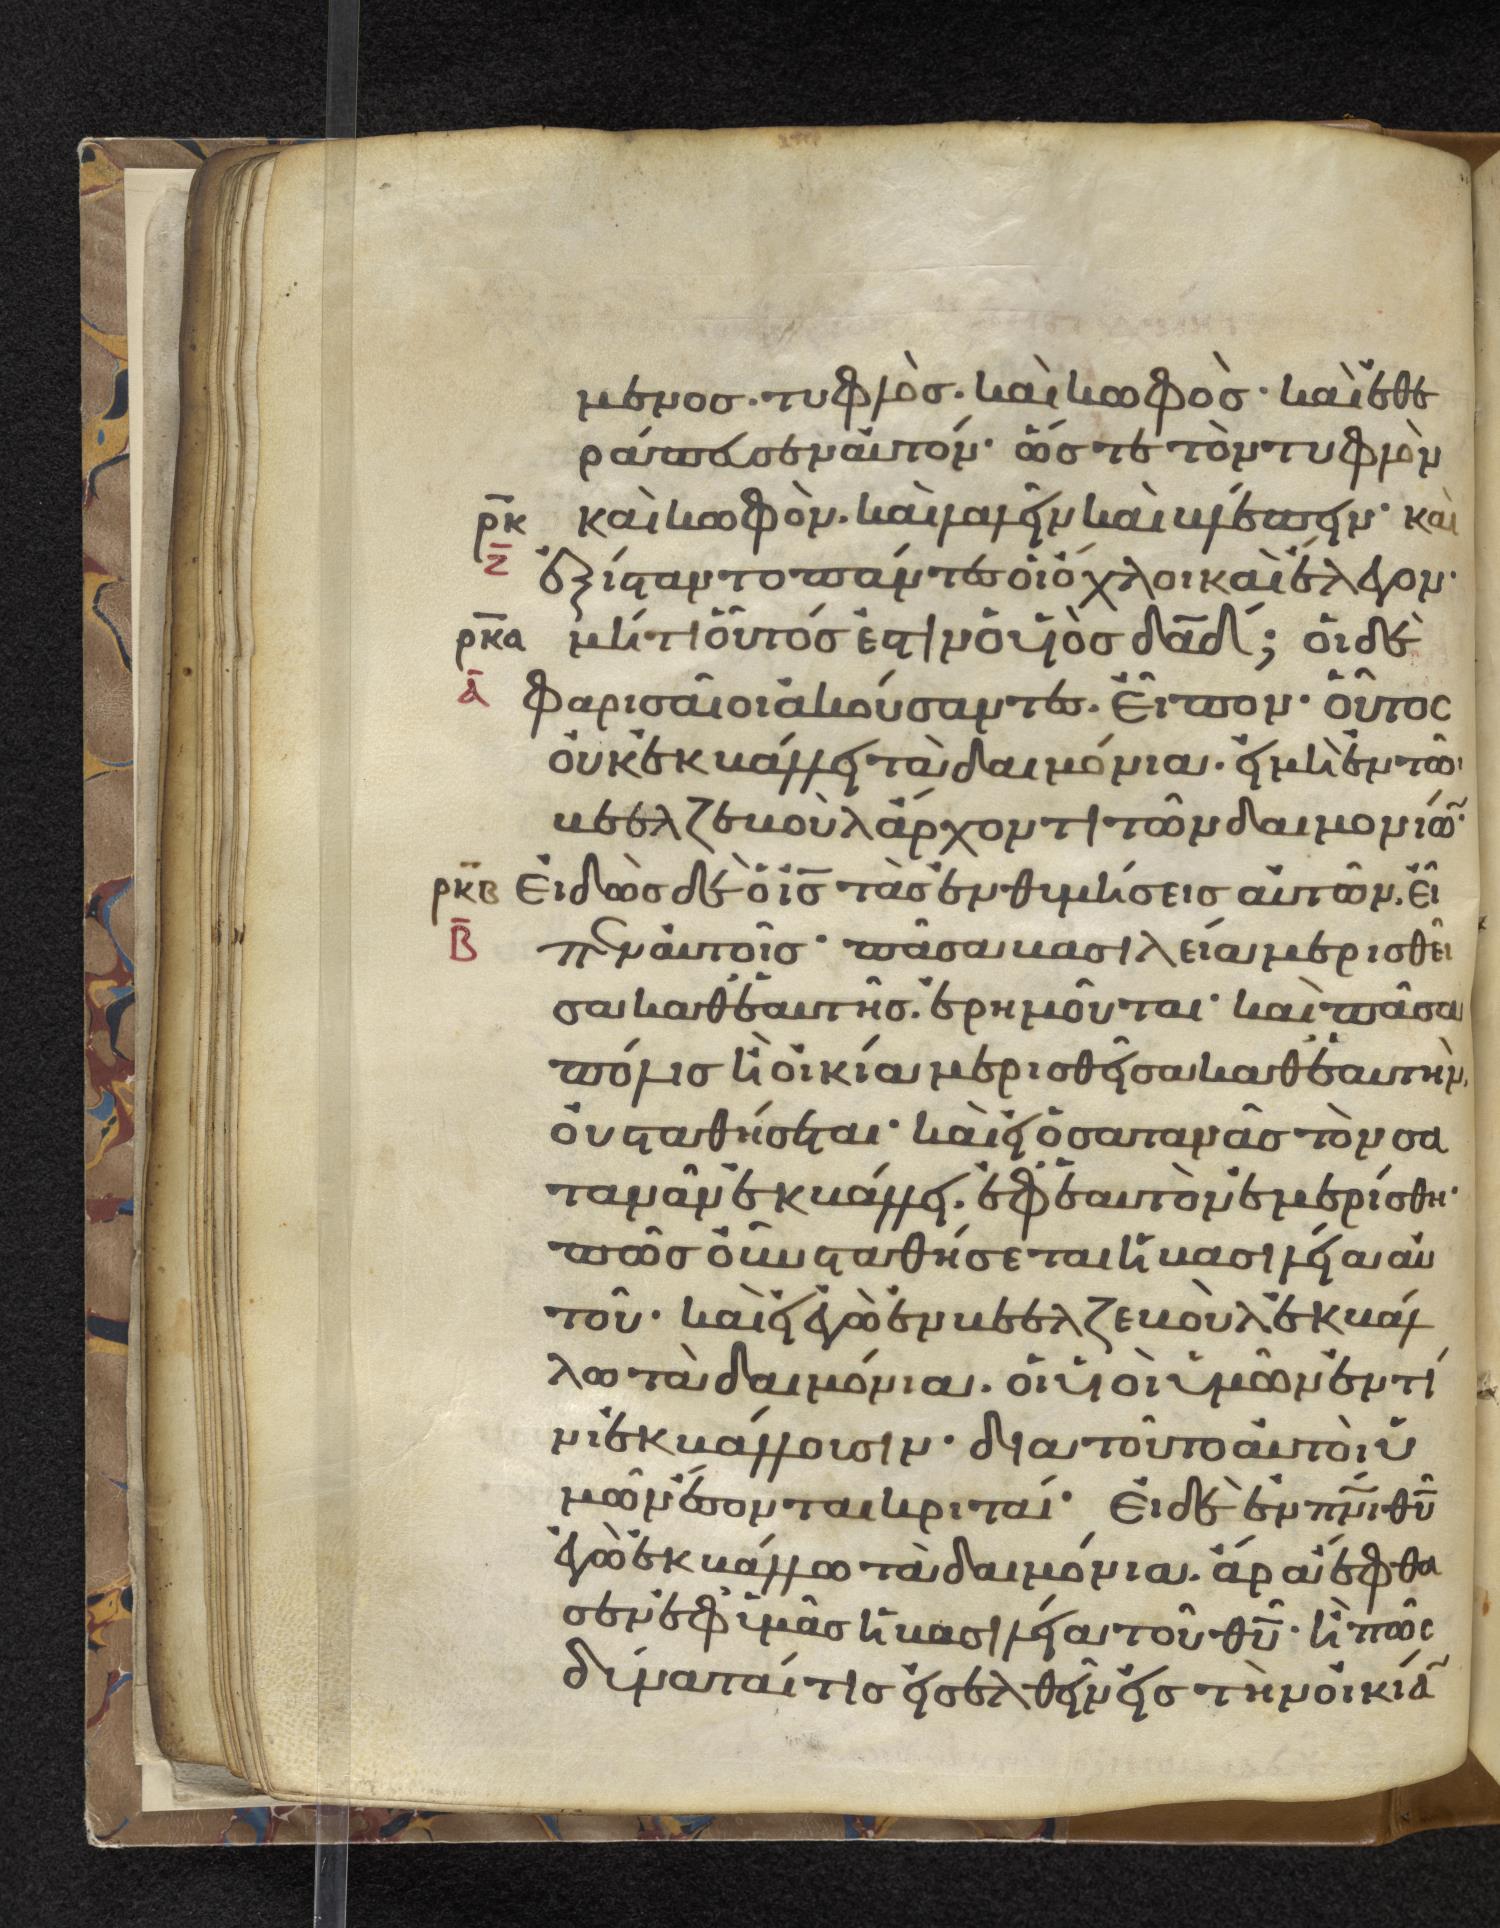 μενος· τυφλὸς· καὶ κωφὸς· καὶ ἐθε
ράπευσεν αὐτόν· ὥστε τὸν τυφλὸν
ρ̅κ̅ καὶ κωφὸν· καὶ λαλεῖν καὶ βλέπειν· καὶ
ζ̅ ἐξίσταντο πάντες οἱ ὄχλοι καὶ ἔλεγον·
ρ̅κ̅α̅ μήτι οὗτός ἐστιν ὁ υἱὸς δα̅δ; οἱ δὲ
δ̅ φαρισαῖοι ἀκούσαντες· εἶπον· οὗτος
οὐκ ἐκβάλλει τὰ δαιμόνια· εἰ μὴ ἐν τῶ
βεελζεβοὺλ ἄρχοντι τῶν δαιμονίω̅·
ρ̅κ̅β̅ Εἰδὼς δὲ ὁ ι̅ς̅ τὰς ἐνθυμήσεις αὐτῶν· εἶ
β̅ πεν αὐτοῖς· πᾶσα βασιλεία μερισθεῖ
σα καθ ἑαυτῆς· ἐρημοῦται· καὶ πᾶσα
πόλις ἢ οἰκία μερισθεῖσα καθ ἑαυτὴν,
οὐ σταθήσεται· καὶ εἰ ὁ σατανᾶς τὸν σα
τανᾶν ἐκβάλλει· ἐφ ἑαυτὸν ἐμερίσθη·
πῶς οὖν σταθήσεται ἡ βασιλεία αὐ
τοῦ· καὶ εἰ ἐγὼ ἐν βεελζεβοὺλ ἐκβάλ
λω τὰ δαιμόνια· οἱ υἱοὶ ὑμῶν ἐν τί
νι ἐκβάλλουσιν· διατοῦτο αὐτοὶ ὑ
μῶν ἔσονται κριταί· Εἰ δὲ ἐν π̅ν̅ι̅ θ̅υ̅
ἐγὼ ἐκβάλλω τὰ δαιμόνια· ἄρα ἔφθα
σεν ἐφ ὑμᾶς ἡ βασιλεία τοῦ θ̅υ̅· ἢ πῶς
δύναταί τις εἰσελθεῖν εἰς τὴν οἰκία̅